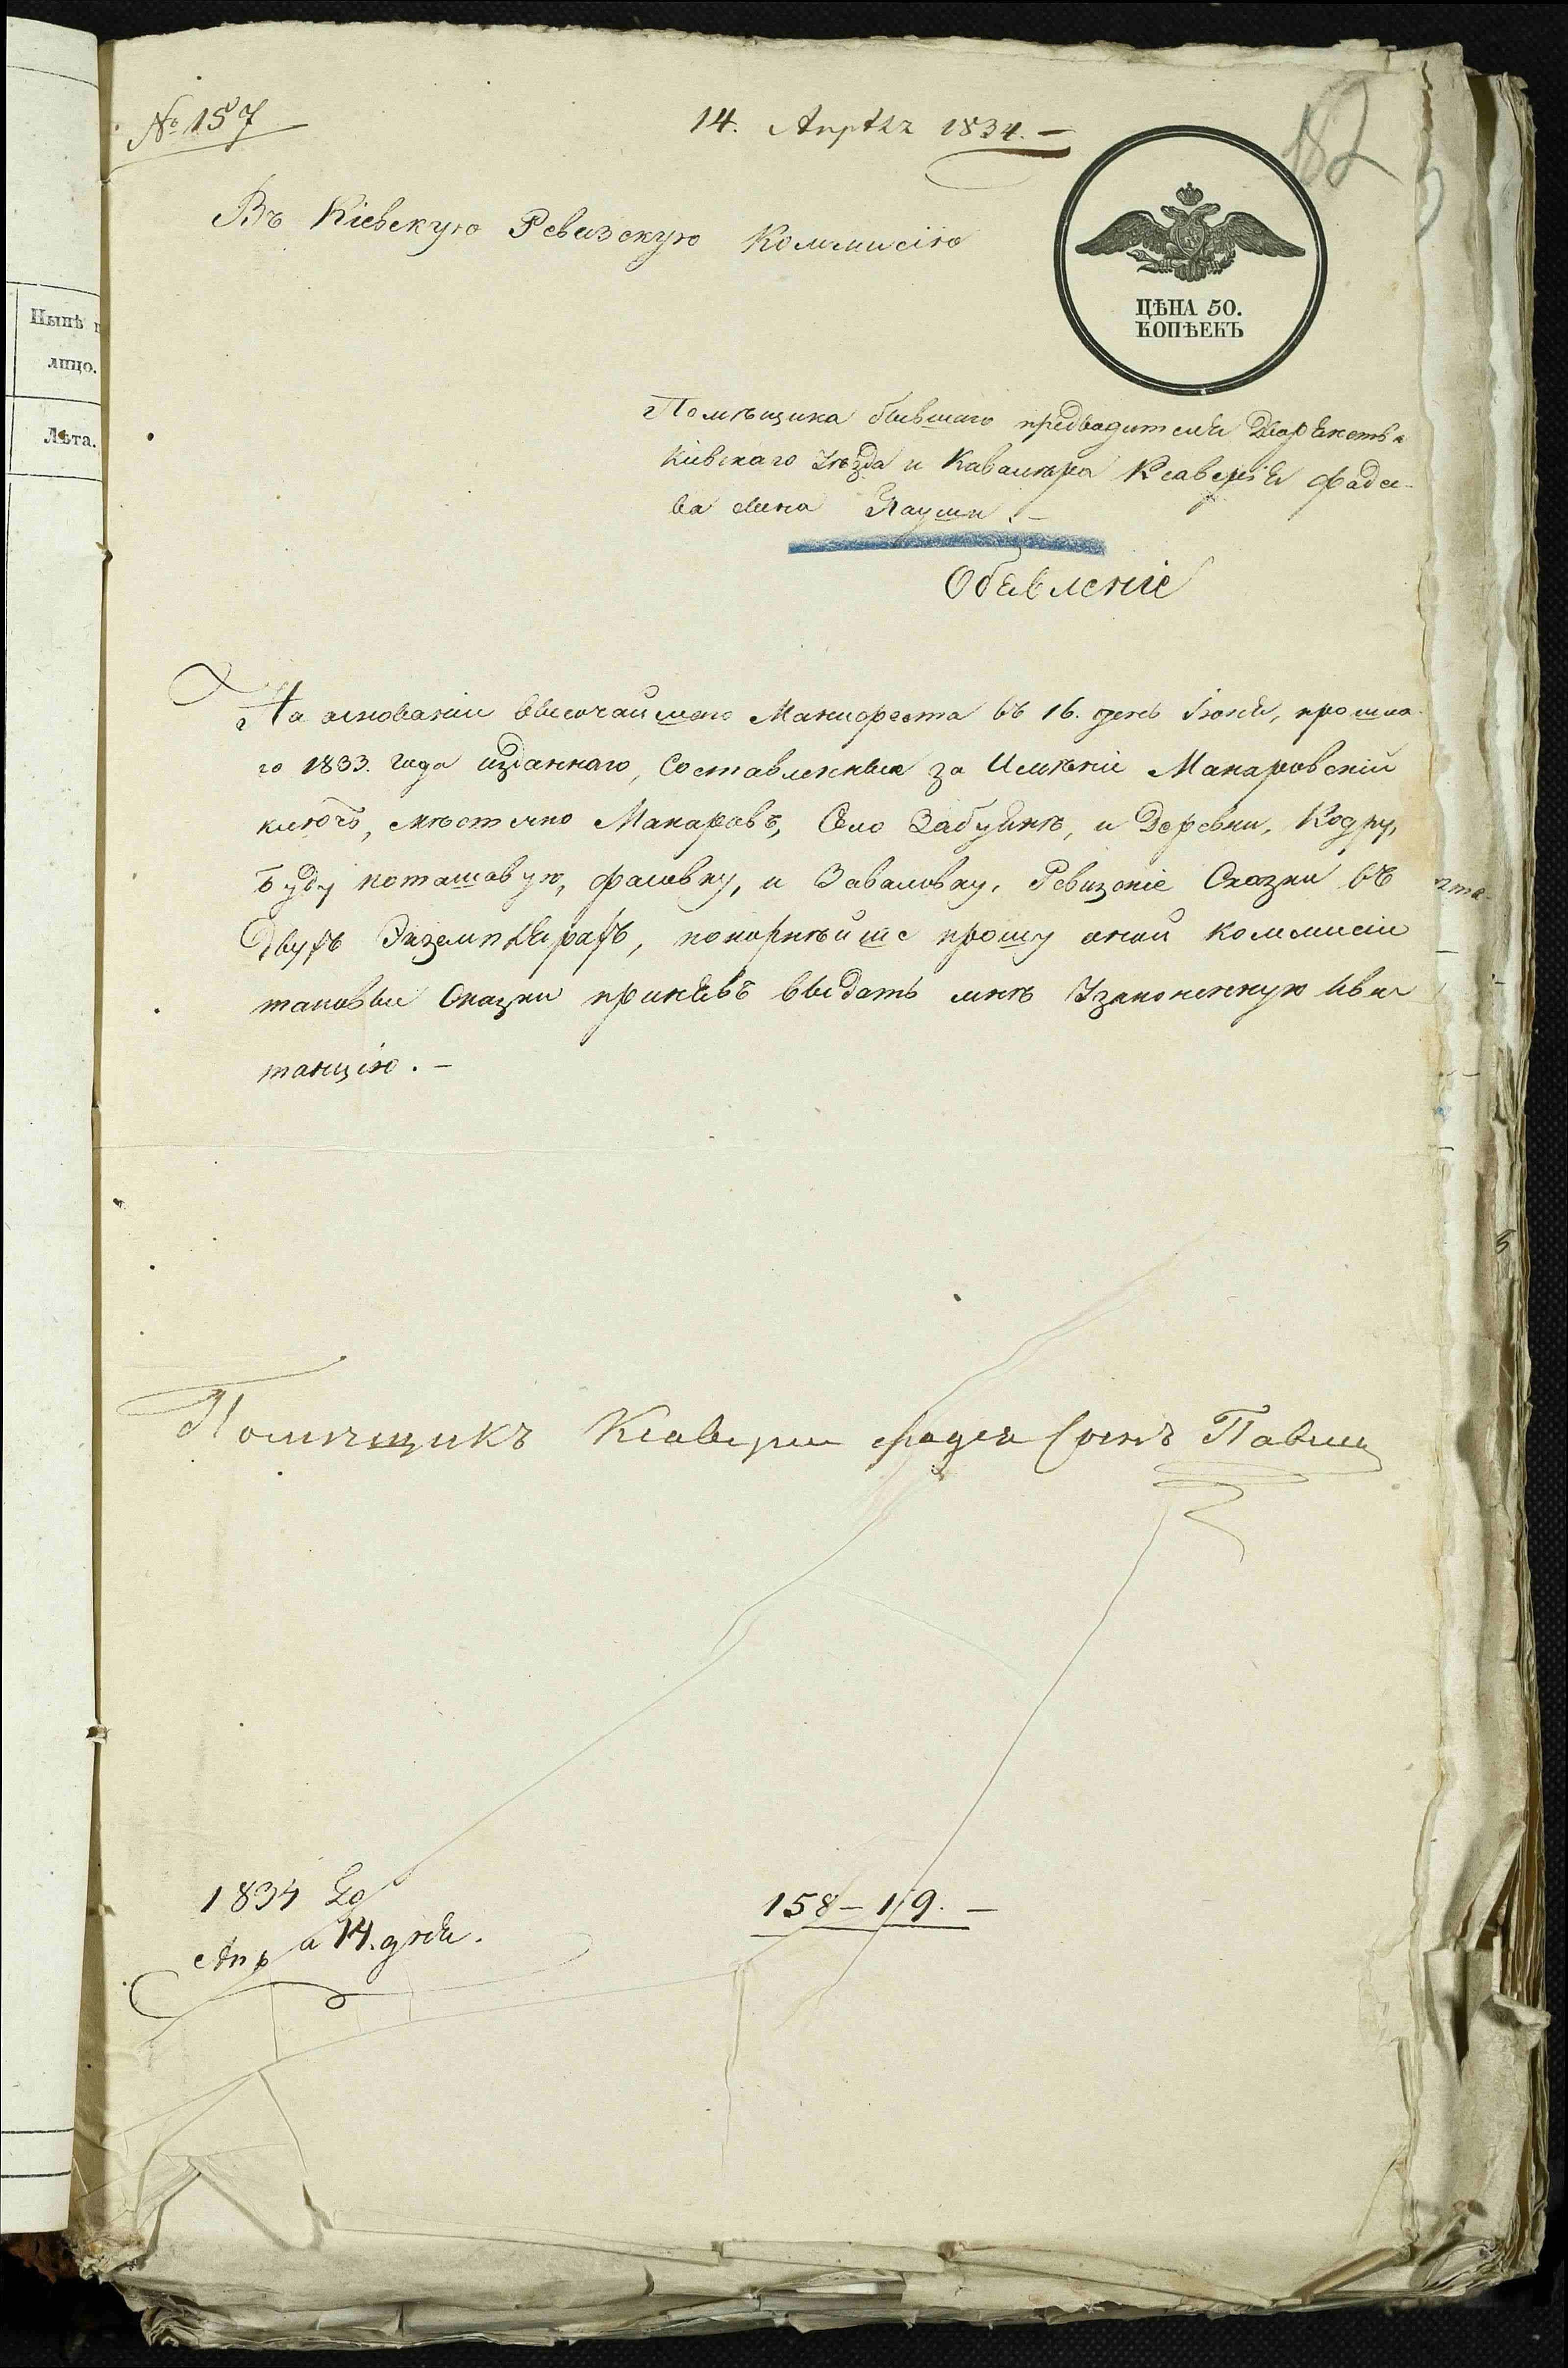 № 157
14. Апрѣлъ 1834. —
182
Въ Кіевскую Ревизскую Коммисію
ЦѢНА 50.
КОПѢЕКЪ
Помѣщика бывшаго предводителя Дворянства
Кіевскаго Уѣзда и Кавалера Ксаверія Фаде-
ва сына
Обявленіе
На основаніи высочайшаго Манифеста въ 16. день Іюня, прошла-
го 1833. года изданнаго, Составленныя за Имѣніе Макаровскій
ключъ, мѣстечко Макаровъ, Село Забуянѣ, и Деревни, Кодру,
Буду поташовую, фасовку, и Заваловку, Ревизскіе Сказки въ
Двухъ Экземплярахъ, покорнѣйше прошу оной коммисіи
таковыи Сказки принявъ выдать мнѣ Узаконенную Кви-
танцію. —
Помѣщикъ Ксаверіи Фадея Сынъ
1834 го
Апр а 14. дня.
158 – 119. —
Нынѣ
лицо.
Лѣта.